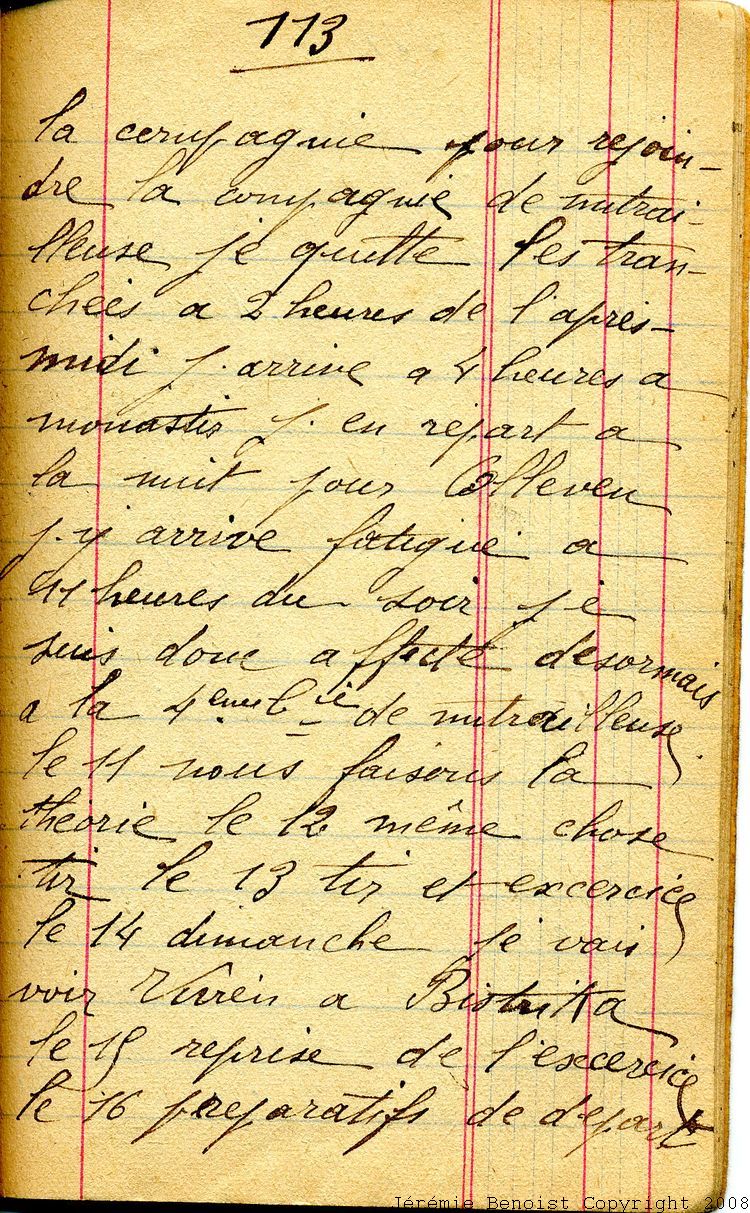 113
la compagnie pour rejoin-
dre la compagnie de mitrai-
lleuse je quitte les tran-
chées a 2 heures de l'après-
midi j. arrive a 4 heures a
monastir j. en repart a
la nuit pour Colleven
j.y arrive fatigué a
11 heures du soir je
suis donc affecté désormais
a la 4eme Cie de mitrailleuse
le 11 nous faisons la
théorie le 12 même chose
tir le 13 tir et excercice
le 14 dimanche je vais
voir a Bistrika
le 15 reprise de l'excercice
le 16 preparatifs de depart
Jérémie Benoist Copyright 2008